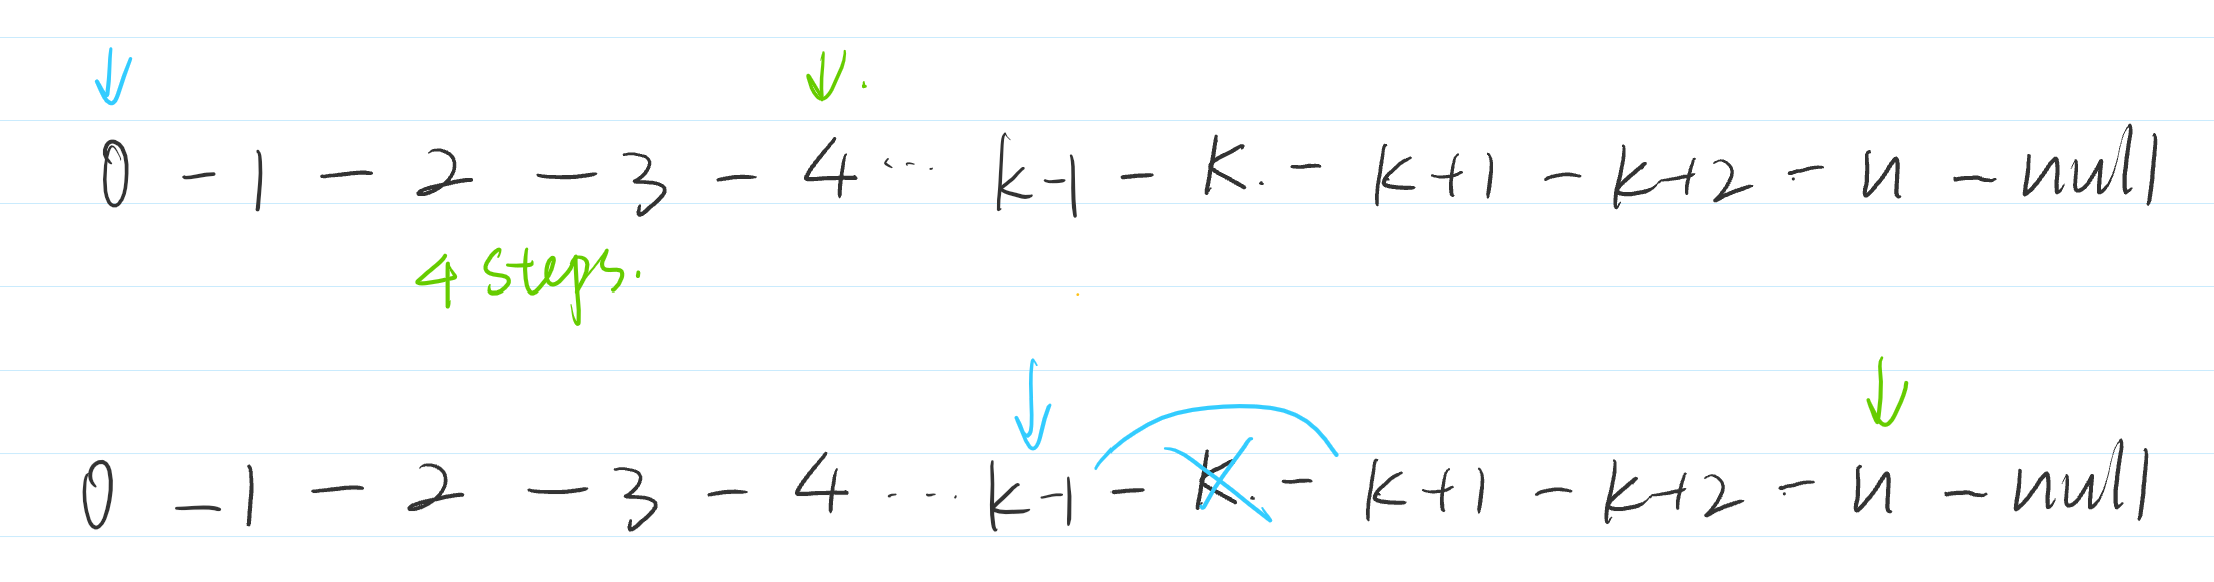 0 - 1 - 2 - 3 - 4 ... k-1 - K. - k+1 - k+2 - n - null
4 steps.
0 - 1 - 2 - 3 - 4 ... k-1 - K. - k+1 - k+2 - n - null